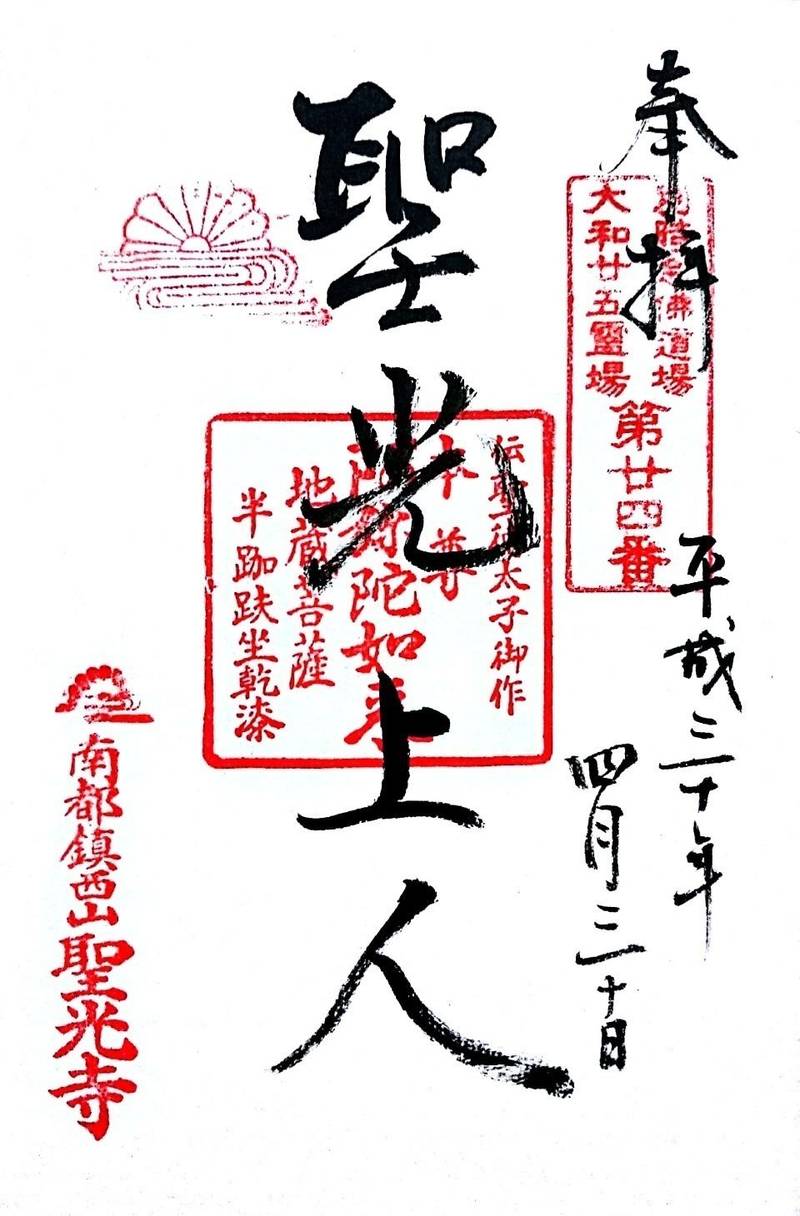 奉拝
道場
大和廿五霊場
第廿四番
平成三十年
四月三十日
聖光上人
太子御作
本尊
阿弥陀如来
地蔵菩薩
半跏趺坐乾漆
南都鎮西山聖光寺